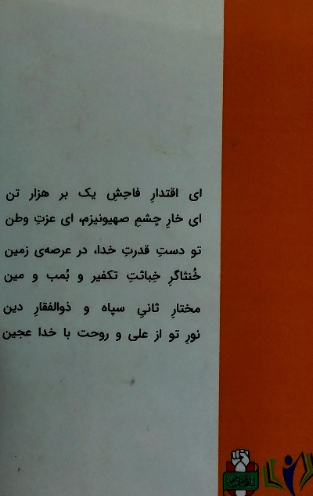 ای اقتدارِ فاحِشِ یک بر هزار تن
ای خارِ چشمِ صهیونیزم، ای عزتِ وطن
تو دستِ قدرتِ خدا، در عرصه‌ی زمین
خُنثاگرِ خِباثتِ تکفیر و بُمب و مین
مختارِ ثانیِ سپاه و ذوالفقارِ دین
نورِ تو از علی و روحت با خدا عجین